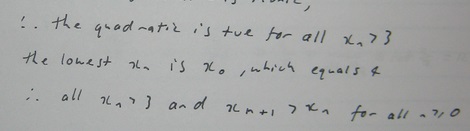 ∴ the quadratic is true for all xₙ > 3
the lowest xₙ is x₀, which equals 4
∴ all xₙ > 3 and xₙ₊₁ > xₙ for all n ≥ 0